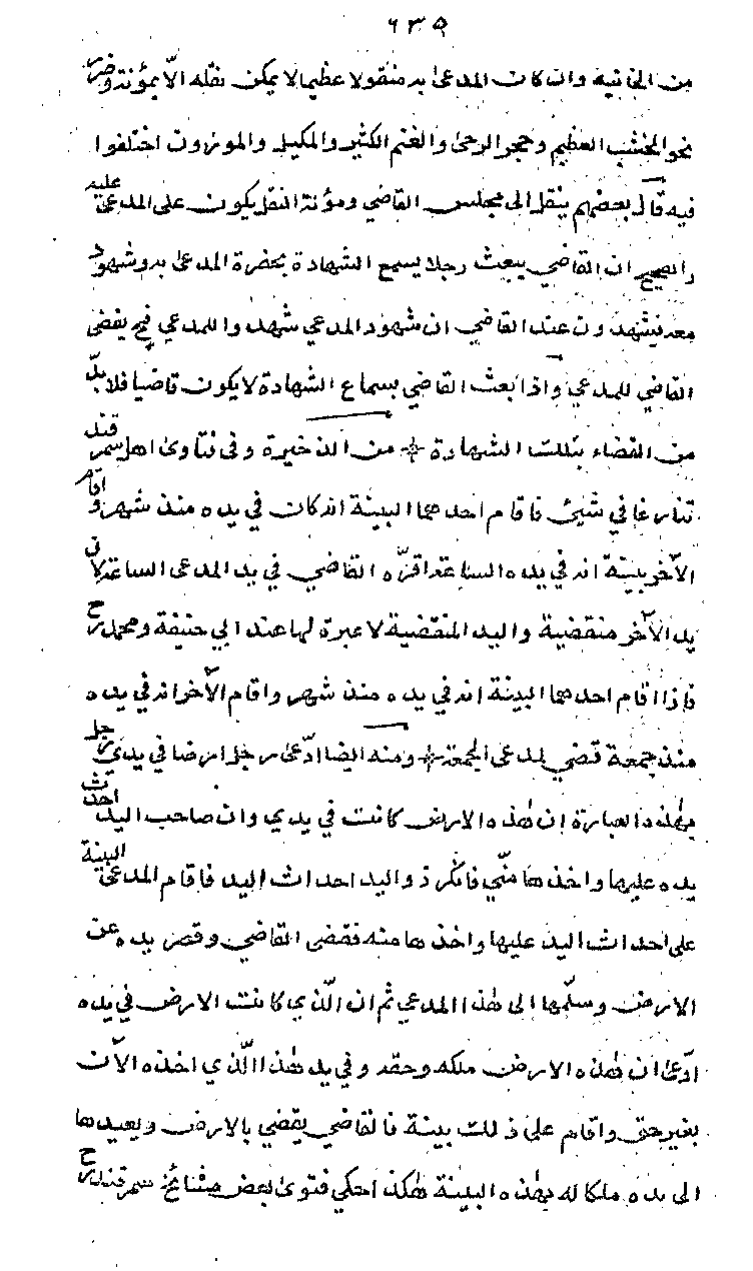 ٦٣٥
من الخانية وان كان المدعى به منقولا عظيما لا يمكن نقله الا بمؤنة وضرر
نحو الخشب العظيم وحجر الرحى والغنم الكثير والمكيل والموزون اختلفوا
فيه قال بعضهم ينقل الى مجلس القاضي ومؤنة النقل يكون على المدعى عليه
والصحيح ان القاضي يبعث رجلا يسمع الشهادة بحضرة المدعى به وشهود
معه فيشهدون عند القاضي ان شهود المدعي شهدوا للمدعي فح يقضى
القاضي للمدعي واذا بعث القاضي بسماع الشهادة لا يكون قاضيا فلا بدّ
من القضاء بتلك الشهادة ÷ من الذخيرة وفى فتاوى اهل سمرقند
تنازعا في شيئ فاقام احدهما البينة انه كان في يده منذ شهر واقام
الآخر بينة انه في يده الساعة اقرّه القاضي في يد المدعى الساعة لان
يد الآخر منقضية واليد المنقضية لا عبرة لها عند ابي حنيفة ومحمد رح
فاذا اقام احدهما البينة انه في يده منذ شهر واقام الآخر انه في يده
منذ جمعة قضي لمدعى الجمعة ÷ ومنه ايضا ادّعى رجل ارضا في يدي رجل
بهذه العبارة ان هذه الارض كانت في يدي وان صاحب اليد احدث
يده عليها واخذها منّي فانكر ذو اليد احداث اليد فاقام المدعي البينة
على احداث اليد عليها واخذها منه فقضى القاضي وقصر يده عن
الارض وسلّمها الى هذا المدعي ثم ان الّذي كانت الارض في يده
ادّعى ان هذه الارض ملكه وحقه وفي يد هذا الّذي اخذه الآن
بغير حق واقام على ذلك بينة فالقاضي يقضي بالارض ويعيدها
الى يده ملكا له بهذه البينة هكذا حكي فتوى بعض مشائخ سمرقند رح